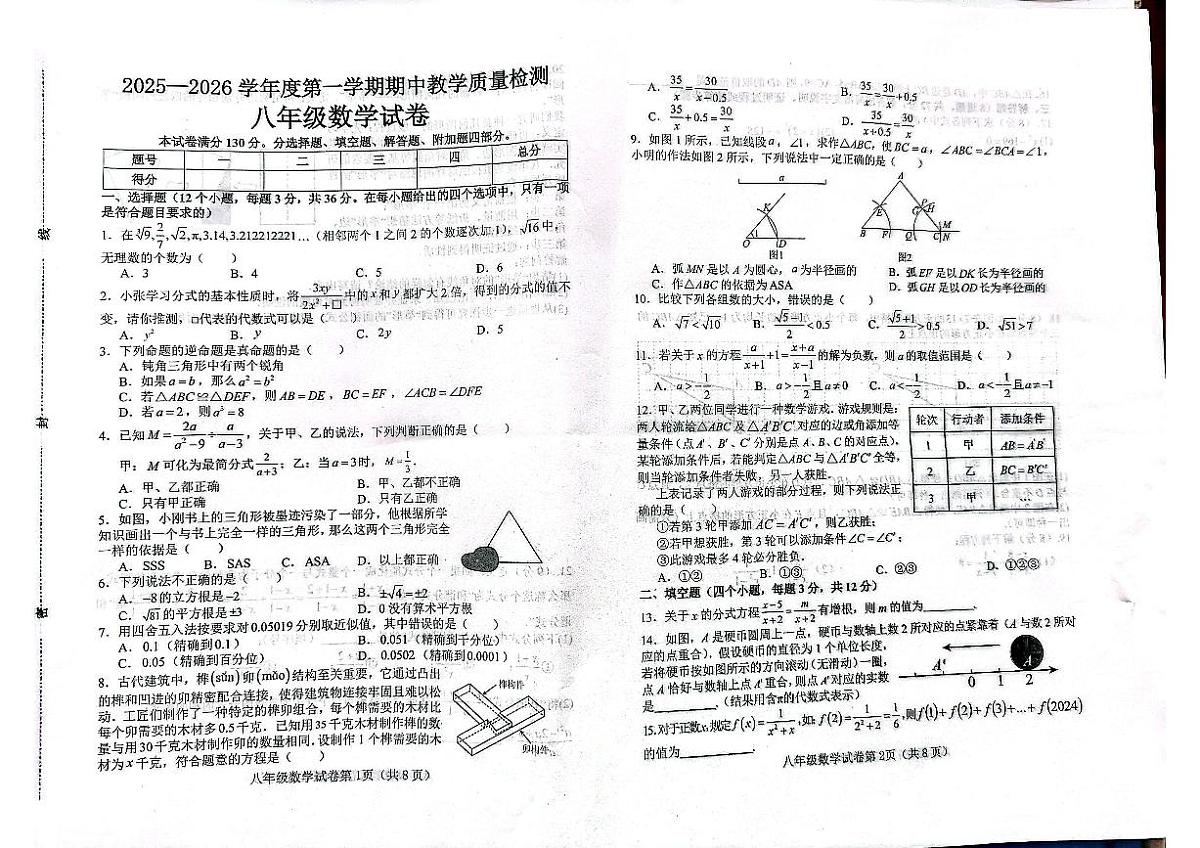 2025—2026 学年度第一学期期中教学质量检测
八年级数学试卷
本试卷满分 130 分。分选择题、填空题、解答题、附加题四部分。
题号 一 二 三 四 总分
得分
一、选择题（12 个小题，每题 3 分，共 36 分。在每小题给出的四个选项中，只有一项
是符合题目要求的）
1．在∛9, 2/7, √2, π, 3.14, 3.212212221…（相邻两个 1 之间 2 的个数逐次加 1），√16 中，
无理数的个数为（　　）
A．3　B．4　C．5　D．6
2．小张学习分式的基本性质时，将 3xy/(2x²+□) 中的 x 和 y 都扩大 2 倍，得到的分式的值不
变，请你推测，□代表的代数式可以是（　　）
A．y²　B．y　C．2y　D．5
3．下列命题的逆命题是真命题的是（　　）
A．钝角三角形中有两个锐角
B．如果 a＝b，那么 a²＝b²
C．若△ABC≌△DEF，则 AB＝DE，BC＝EF，∠ACB＝∠DFE
D．若 a＝2，则 a³＝8
4．已知 M＝2a/(a²−9)÷a/(a−3)，关于甲、乙的说法，下列判断正确的是（　　）
甲：M 可化为最简分式 2/(a+3)；乙：当 a＝3 时，M＝1/3.
A．甲、乙都正确　B．甲、乙都不正确
C．只有甲正确　D．只有乙正确
5．如图，小刚书上的三角形被墨迹污染了一部分，他根据所学
知识画出一个与书上完全一样的三角形，那么这两个三角形完全
一样的依据是（　　）
A．SSS　B．SAS　C．ASA　D．以上都正确
6．下列说法不正确的是（　　）
A．−8 的立方根是−2　B．±√4＝±2
C．√81 的平方根是±3　D．0 没有算术平方根
7．用四舍五入法按要求对 0.05019 分别取近似值，其中错误的是（　　）
A．0.1（精确到 0.1）　B．0.051（精确到千分位）
C．0.05（精确到百分位）　D．0.0502（精确到 0.0001）
8．古代建筑中，榫(sǔn)卯(mǎo)结构至关重要，它通过凸出
的榫和凹进的卯精密配合连接，使得建筑物连接牢固且难以松
动．工匠们制作了一种特定的榫卯组合，每个榫需要的木材比
每个卯需要的木材多 0.5 千克．已知用 35 千克木材制作榫的数
量与用 30 千克木材制作卯的数量相同．设制作 1 个榫需要的木
材为 x 千克，符合题意的方程是（　　）
榫构件
卯构件
八年级数学试卷第 1页（共 8 页）
线
封
密
A．35/x＝30/(x−0.5)　B．35/x＝30/x+0.5
C．35/x+0.5＝30/x　D．35/(x+0.5)＝30/x
9．如图 1 所示，已知线段 a，∠1，求作△ABC，使 BC＝a，∠ABC＝∠BCA＝∠1，
小明的作法如图 2 所示，下列说法中一定正确的是（　　）
a
K
O 1 D
图1
A
E P H
B F Q C M N
图2
A．弧 MN 是以 A 为圆心，a 为半径画的　B．弧 EF 是以 DK 长为半径画的
C．作△ABC 的依据为 ASA　D．弧 GH 是以 OD 长为半径画的
10．比较下列各组数的大小，错误的是（　　）
A．√7＜√10　B．(√5−1)/2＜0.5　C．(√5+1)/2＞0.5　D．√51＞7
11．若关于 x 的方程 a/(x+1)+1＝(x+a)/(x−1) 的解为负数，则 a 的取值范围是（　　）
A．a＞−1/2　B．a＞−1/2且 a≠0　C．a＜−1/2　D．a＜−1/2且 a≠−1
12．甲、乙两位同学进行一种数学游戏．游戏规则是：
两人轮流给△ABC 及△A′B′C′ 对应的边或角添加等
量条件（点 A′、B′、C′ 分别是点 A、B、C 的对应点），
某轮添加条件后，若能判定△ABC 与△A′B′C′ 全等，
则当轮添加条件者失败，另一人获胜．
轮次 行动者 添加条件
1 甲 AB＝A′B′
2 乙 BC＝B′C′
3 甲 …
上表记录了两人游戏的部分过程，则下列说法正
确的是（　　）
①若第 3 轮甲添加 AC＝A′C′，则乙获胜；
②若甲想获胜，第 3 轮可以添加条件∠C＝∠C′；
③此游戏最多 4 轮必分胜负．
A．①②　B．①③　C．②③　D．①②③
二、填空题（四个小题，每题 3 分，共 12 分）
13．关于 x 的分式方程 (x−5)/(x+2)＝m/(x+2) 有增根，则 m 的值为______．
14．如图，A 是硬币圆周上一点，硬币与数轴上数 2 所对应的点紧靠著（A 与数 2 所对
应的点重合)．假设硬币的直径为 1 个单位长度，
若将硬币按如图所示的方向滚动（无滑动）一圈，
点 A 恰好与数轴上点 A′ 重合，则点 A′ 对应的实数
是______．（结果用含π的代数式表示）
A′ 0 1 2
A
15.对于正数x,规定 f(x)＝1/(x²+x),如 f(2)＝1/(2²+2)＝1/6,则 f(1)+f(2)+f(3)+…+f(2024)
的值为______．
八年级数学试卷第 2页（共 8 页）